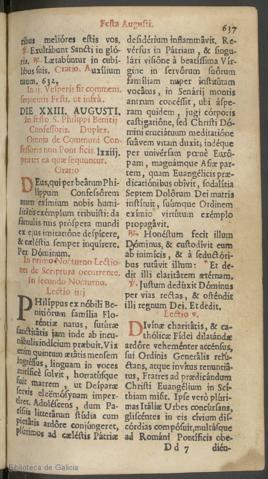 Festa Augusti.
637
ribus melióres estis vos.
℣. Exultábunt Sancti in glória. ℟. Lætabúntur in cubilibus suis. Oratio. Auxilium
tuum, 632,
In ij. Vesperis fit commem.
sequentis Festi, ut infrà.
DIE XXIII. AUGUSTI.
In festo S. Philippi Benitij
Confessoris. Duplex.
Omnia de Communi Confessoris non Pontificis lxxiij.
præter ea quæ sequuntur.
Oratio
DEus, qui per beátum Philippum Confessórem tuum
exímium nobis humilitátis exémplum tribuísti: da
fámulis tuis próspera mundi
ex ejus imitatióne despícere,
& cæléstia semper inquírere.
Per Dóminum.
In primo Nocturno Lectiones de Scriptura occurrente.
In secundo Nocturno.
Lectio iiij
PHilíppus ex nóbili Benitiórum família Floréntiæ natus, futúræ
sanctitátis jam inde ab incunábulis indícium præbuit. Vix
enim quintum ætátis mensem
ingréssus, linguam in voces
mirificè solvit, hortatúsque
fuit matrem, ut Deíparæ
servis eleemósynam impertíret. Adoléscens, dum Parísiis litterárum stúdia cum
pietátis ardóre conjúngeret,
plúrimos ad cæléstis Pátriæ
desidérium inflammávit. Revérsus in Pátriam, & singulári visióne à beatíssima Vírgine in servórum suórum
famíliam nuper institútam
vocátus, in Senárij montis
antrum concéssit, ubi ásperam quidem, jugi córporis
castigatióne, sed Christi Dómini cruciátuum meditatióne
suávem vitam duxit, indéque
per univérsam penè Európam, magnámque Asiæ partem, quam Evangélicis prædicatiónibus obívit, sodalítia
Septem Dolórum Dei matris
instítuit, suúmque Ordinem
exímio virtútum exémplo
propagávit.
℟. Honéstum fecit illum
Dóminus, & custodívit eum
ab inimícis, & à seductóribus tutávit illum: * Et dedit illi claritátem ætérnam.
℣. Justum dedúxit Dóminus
per vias rectas, & osténdit
illi regnum Dei. Et dedit.
Lectio v.
DIvínæ charitátis, & cathólicæ Fídei dilatándæ
ardóre veheménter accénsus,
sui Ordinis Generális reluctans, atque invítus renuntiátus, Fratres ad prædicándum
Christi Evangélium in Scýthiam misit. Ipse verò plúrimas Itáliæ Urbes concúrsans,
gliscéntes in eis cívium discórdias compósuit, multásque
ad Románi Pontíficis obe-
D d 7 dien-
Biblioteca de Galicia